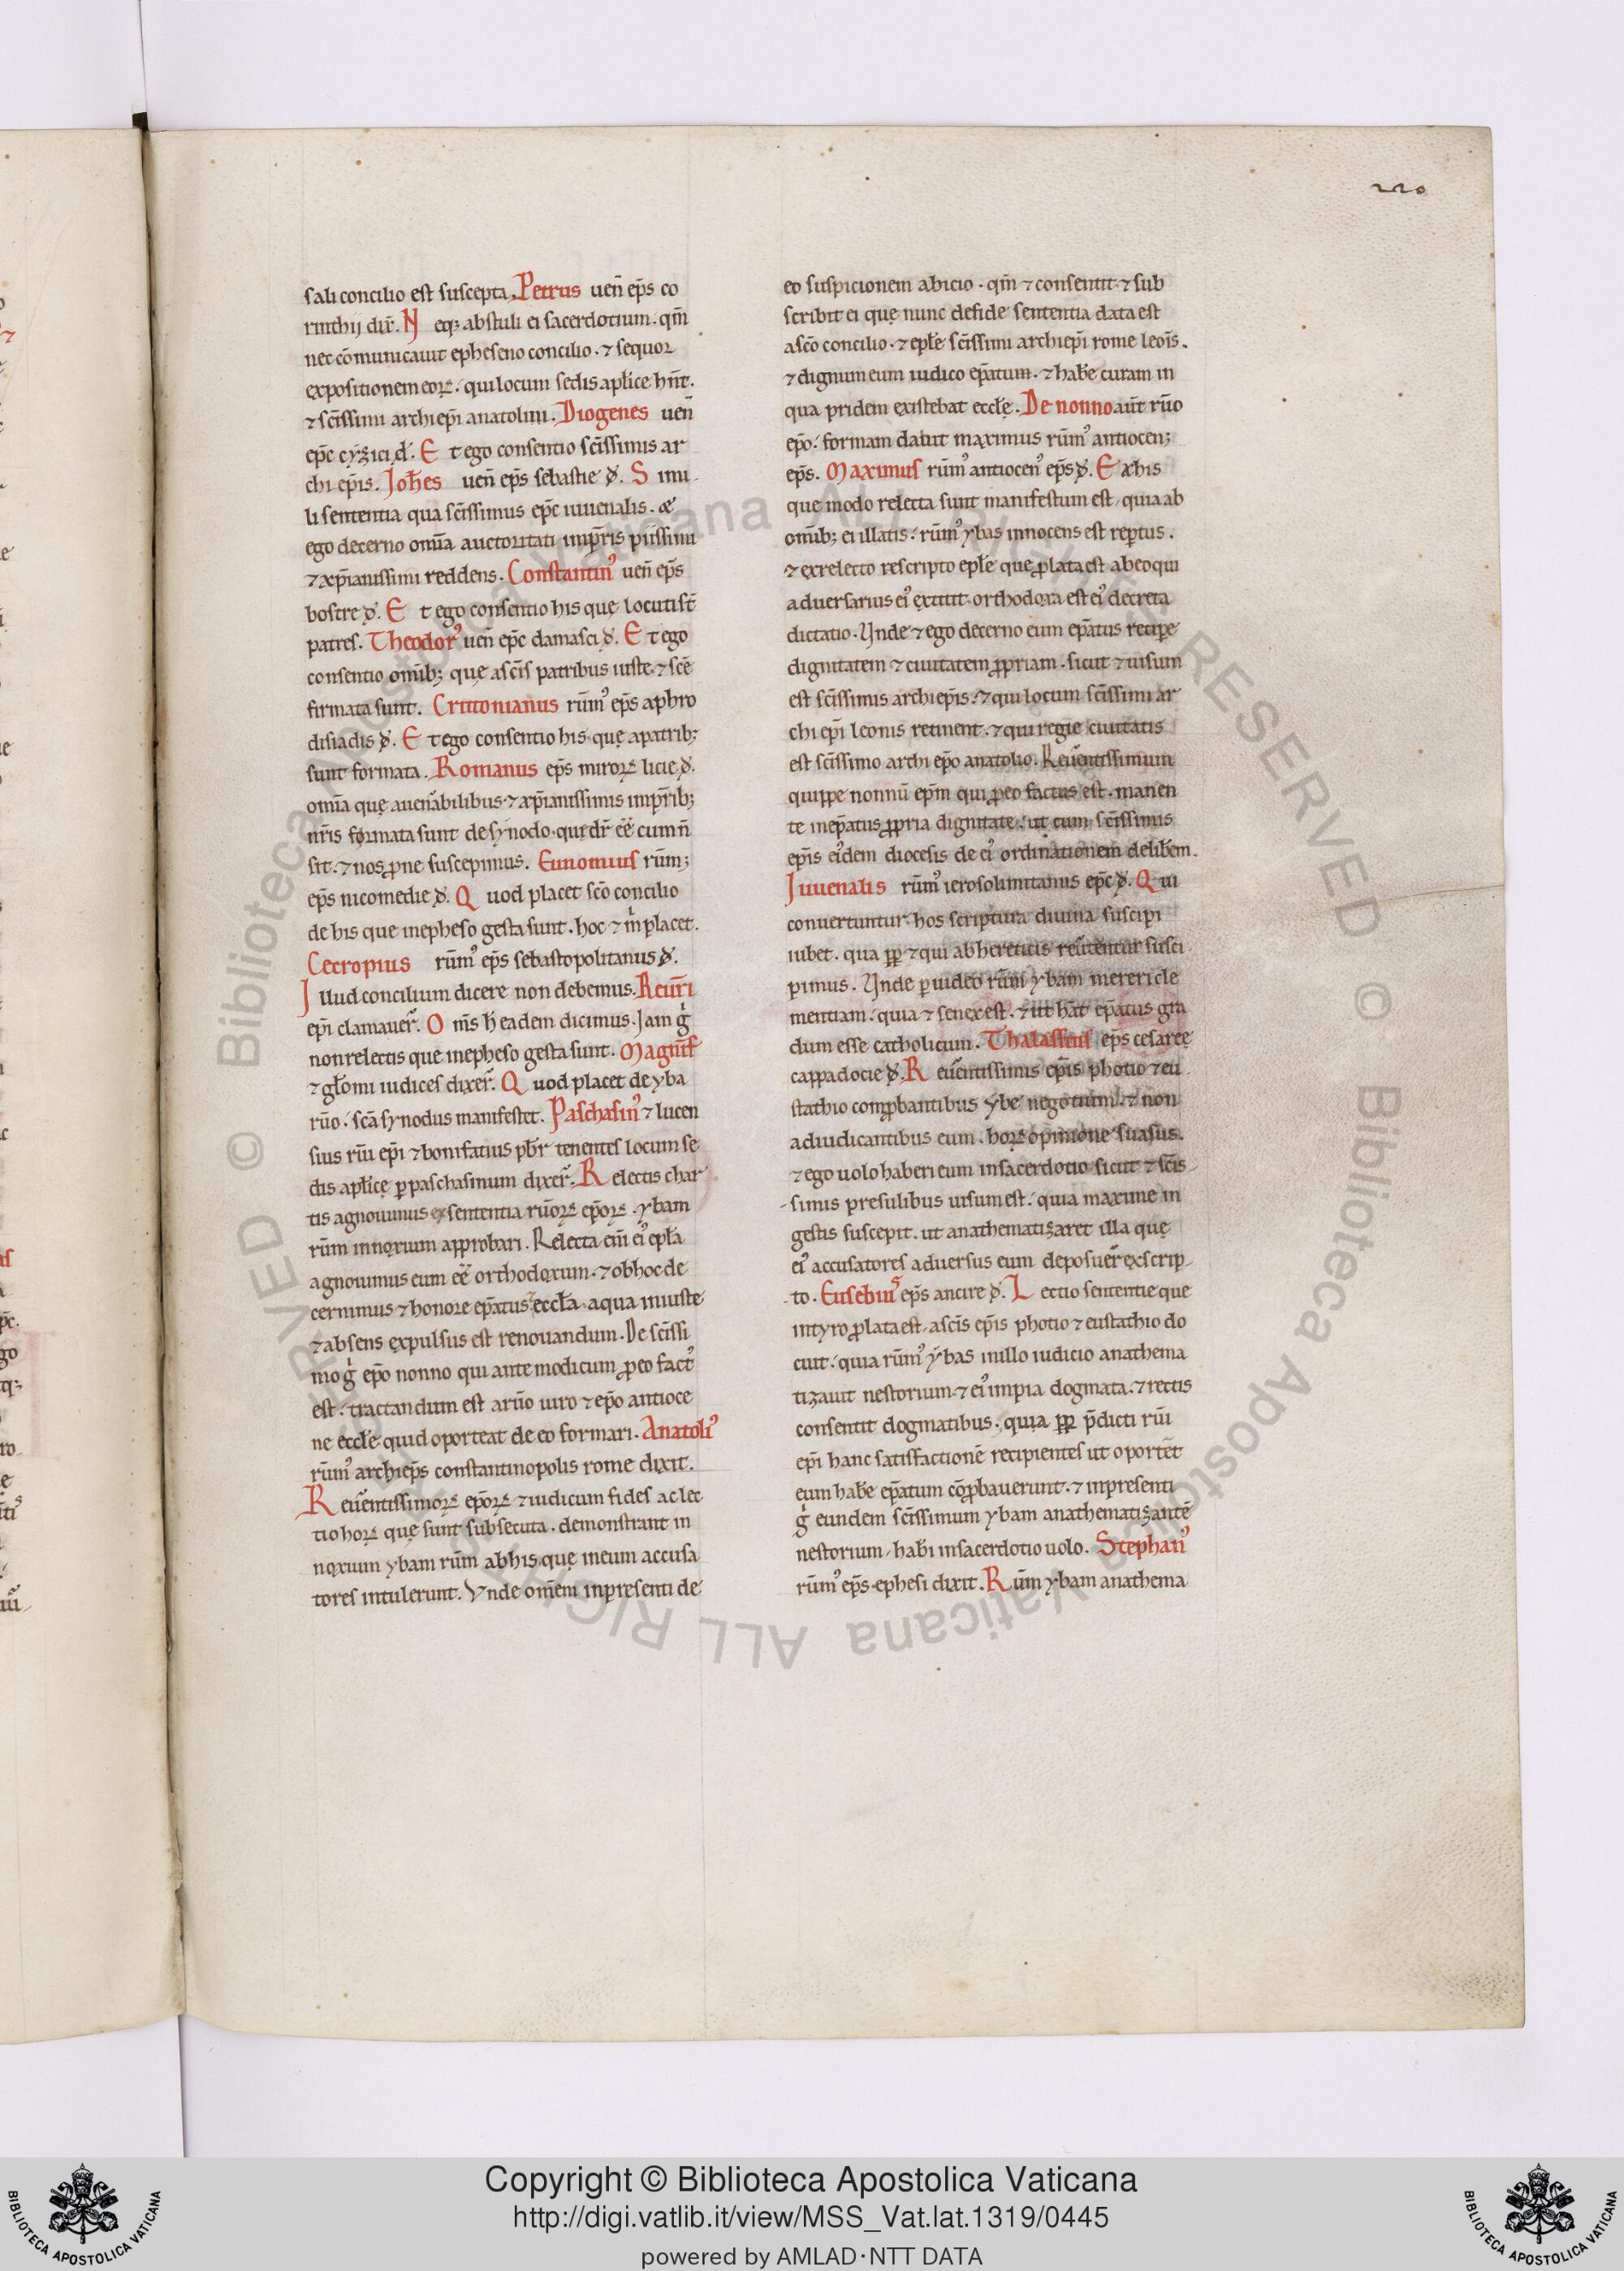 220
sali concilio est suscepta. Petrus ueñ ep̃s co
rinthij dix̃. N eq; abstuli ei sacerdotium. qm̃
nec cõmunicauit epheseno concilio. ⁊ sequor
expositionem eoꝝ. qui locum sedis apl̃ice hñt.
⁊ sc̃issimi archiep̃i anatolini. Diogenes ueñ
ep̃c cyzici d̃. E t ego consentio sc̃issimis ar
chi ep̃is. Joh̃es ueñ ep̃s sebastie đ. S imi
li sententia qua sc̃issimus ep̃c iuuenalis. æ
ego decerno om̃ia auctoritati imp̃ris piissimi
⁊ xp̃ianissimi reddens. Constantin᾽ ueñ ep̃s
bostre đ. E t ego consentio his que locuti st̃
patres. Theodor᾽ ueñ ep̃c damasci đ. E t ego
consentio om̃ib; que a sc̃is patribus iuste. ⁊ sc̃e
firmata sunt. Critonianus rũm᾽ ep̃s aphro
disiadis đ. E t ego consentio his que a patrib;
sunt formata. Romanus ep̃s miroꝝ licie đ.
om̃ia que a uen̾abilibus ⁊ xp̃ianissimis imp̃rib;
nr̃is formata sunt de synodo. que dr̃ eẽ cum ñ
sit. ⁊ nos ꝓ ne suscepimus. Eunomius rũm;
ep̃s nicomedie đ. Q uod placet sc̃o concilio
de his que in epheso gesta sunt. hoc ⁊ m̍ placet.
Cecropius rũm᾽ ep̃s sebastopolitanus đ.
I llud concilium dicere non debemus. Reuer̃i
ep̃i clamauer̃. O m̃s h̃ eadem dicimus. Jam g̍
non relectis que in epheso gesta sunt. Magnif̃
⁊ gl̃omi iudices dixer̃. Q uod placet de yba
rũo. sc̃a synodus manifestet. Paschasin᾽ ⁊ lucen
sius rũi ep̃i ⁊ bonifatius pb̃r tenentes locum se
dis apl̃ice ꝑ paschasinum dixer̃. R electis char
tis agnouimus ex sententia rũoꝝ ep̃oꝝ. ybam
rũm innoxium approbari. Relecta em̃ ei᾽ epl̃a
agnouimus eum eẽ orthodoxum. ⁊ ob hoc de
cernimus ⁊ honore ep̃atus ⁊ eccl̃a. a qua iniuste
⁊ absens expulsus est renouandum. De sc̃issi
mo g̍ ep̃o nonno qui ante modicum ꝓ eo fact᾽
est. tractandum est a rũo uiro ⁊ ep̃o antioce
ne eccl̃e quid oporteat de eo formari. Anatoli᾽
rũm᾽ archiep̃s constantinopolis rome dixit.
R eu̾entissimoꝝ ep̃oꝝ ⁊ iudicum fides ac lec
tio hoꝝ que sunt subsecuta. demonstrant in
noxium ybam rũm ab his que in eum accusa
tores intulerunt. Vnde om̃em in presenti de
eo suspicionem abicio. qm̃ ⁊ consentit ⁊ sub
scribit ei que nunc de fide sententia data est
a sc̃o concilio. ⁊ epl̃e sc̃issimi archiep̃i rome leoñis.
⁊ dignum eum iudico ep̃atum. ⁊ hab̃e curam in
qua pridem existebat eccl̃e. De nonno aũt rũo
ep̃o. formam dabit maximus rũm᾽ antiocen;
ep̃s. Maximus rũm᾽ antiocen᾽ ep̃s đ. E x his
que modo relecta sunt manifestum est, quia ab
om̃ib; ei illatis. rũm᾽ ybas innocens est rep̃tus.
⁊ ex relecto rescripto epl̃e que ꝓlata est ab eo qui
aduersarius ei᾽ extitit. orthodoxa est ei᾽ decreta
dictatio. Vnde ⁊ ego decerno eum ep̃atus recipe
dignitatem ⁊ ciuitatem ꝓpriam. sicut ⁊ uisum
est sc̃issimis archiep̃is. ⁊ qui locum sc̃issimi ar
chi ep̃i leonis retinent. ⁊ qui regie ciuitatis
est sc̃issimo archi ep̃o anatolio. Reu̾entissimum
quippe nonnũ ep̃m qui ꝓ eo factus est. manen
te in ep̃atus ꝓpria dignitate. ut cum sc̃issimis
ep̃is ei᾽dem diocesis de ei᾽ ordinationem delib̃em.
Juuenalis rũm᾽ ierosolimitanus ep̃c đ. Q ui
conuertuntur. hos scriptura diuina suscipi
iubet. qua ꝓp̃ ⁊ qui ab hereticis reu̾tentur susci
pimus. Vnde ꝑuideo rũm ybam mereri cle
mentiam. quia ⁊ senex est. ⁊ ut hãt ep̃atus gra
dum esse catholicum. Thalassius ep̃s cesaree
cappadocie đ. R eu̾entissimis ep̃is photio ⁊ eu
stathio comꝓbantibus ybe negotium. ⁊ non
adiudicantibus eum. hoꝝ opinione suasus.
⁊ ego uolo haberi eum in sacerdotio sicut ⁊ sc̃is
simis presulibus uisum est. quia maxime in
gestis suscepit. ut anathematizaret illa que
ei᾽ accusatores aduersus eum deposuer̃ ex scrip
to. Eusebius ep̃s ancire đ. L ectio sententie que
in tyro ꝓlata est. a sc̃is ep̃is photio ⁊ eustathio do
cuit. quia rũm᾽ ybas in illo iudicio anathema
tizauit nestorium. ⁊ ei᾽ impia dogmata. ⁊ rectis
consentit dogmatibus. quia ꝓp̃ p̃dicti rũi
ep̃i hanc satisfactionẽ recipientes ut oportet
eum hab̃e ep̃atum cõꝓbauerunt. ⁊ in presenti
g̍ eundem sc̃issimum ybam anathematizantẽ
nestorium, hab̃i in sacerdotio uolo. Stephan᾽
rũm᾽ ep̃s ephesi dixit. R ũm ybam anathema
Copyright © Biblioteca Apostolica Vaticana
http://digi.vatlib.it/view/MSS_Vat.lat.1319/0445
powered by AMLAD·NTT DATA
BIBLIOTECA APOSTOLICA VATICANA
BIBLIOTECA APOSTOLICA VATICANA
© Biblioteca Apostolica Vaticana ALL RIGHTS RESERVED © Biblioteca Apostolica Vaticana ALL RIGHTS RESERVED